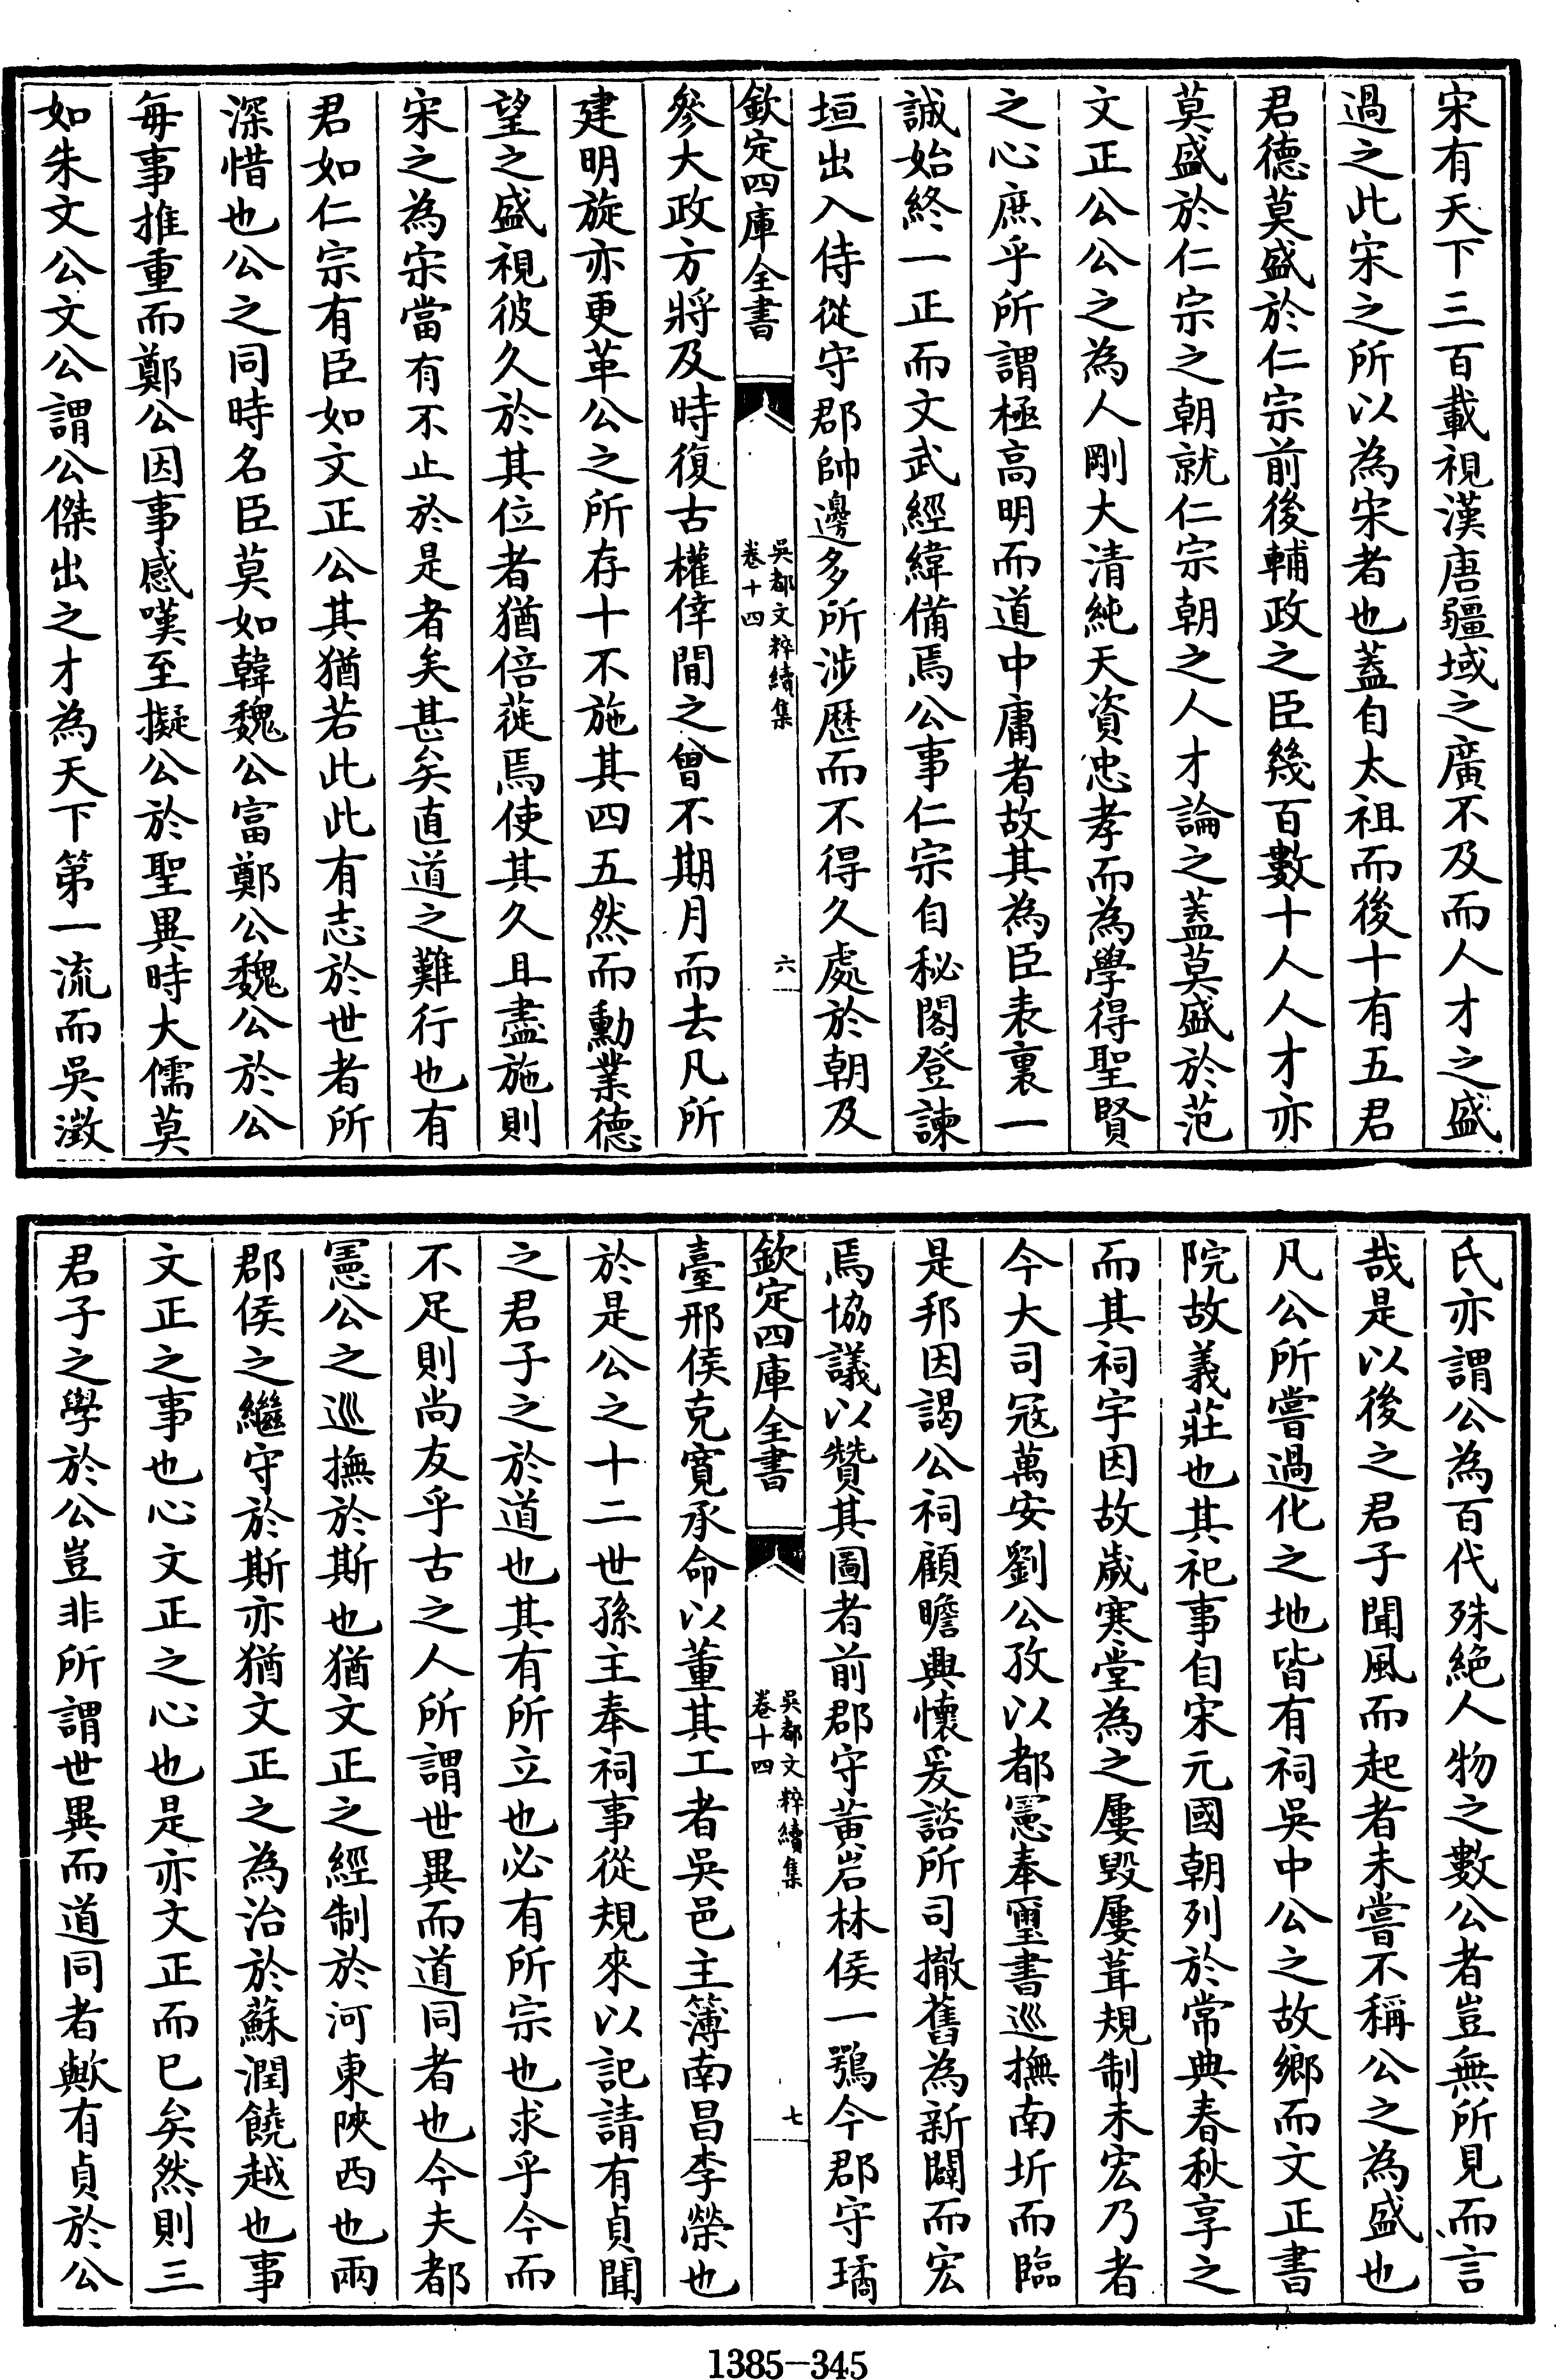 宋有天下三百載視漢唐疆域之廣不及而人才之盛
過之此宋之所以為宋者也蓋自太祖而後十有五君
君德莫盛於仁宗前後輔政之臣幾百數十人人才亦
莫盛於仁宗之朝就仁宗朝之人才論之蓋莫盛於范
文正公公之為人剛大清純天資忠孝而為學得聖賢
之心庶乎所謂極高明而道中庸者故其為臣表裏一
誠始終一正而文武經緯備焉公事仁宗自秘閣登諫
垣出入侍從守郡帥邊多所涉歷而不得久處於朝及
欽定四庫全書
吳都文粹續集
卷十四
六
參大政方將及時復古權倖間之曾不期月而去凡所
建明旋亦更革公之所存十不施其四五然而勳業德
望之盛視彼久於其位者猶倍蓰焉使其久且盡施則
宋之為宋當有不止於是者矣甚矣直道之難行也有
君如仁宗有臣如文正公其猶若此此有志於世者所
深惜也公之同時名臣莫如韓魏公富鄭公魏公於公
每事推重而鄭公因事感嘆至擬公於聖異時大儒莫
如朱文公文公謂公傑出之才為天下第一流而吳澂
氏亦謂公為百代殊絶人物之數公者豈無所見而言
哉是以後之君子聞風而起者未嘗不稱公之為盛也
凡公所嘗過化之地皆有祠吳中公之故鄉而文正書
院故義莊也其祀事自宋元國朝列於常典春秋享之
而其祠宇因故歲寒堂為之屢毀屢葺規制未宏乃者
今大司寇萬安劉公孜以都憲奉璽書巡撫南圻而臨
是邦因謁公祠顧瞻興懷爰諮所司撤舊為新闢而宏
焉協議以贊其圖者前郡守黃岩林侯一鶚今郡守璚
欽定四庫全書
吳都文粹續集
卷十四
七
臺邢侯克寬承命以董其工者吳邑主簿南昌李榮也
於是公之十二世孫主奉祠事從規來以記請有貞聞
之君子之於道也其有所立也必有所宗也求乎今而
不足則尚友乎古之人所謂世異而道同者也今夫都
憲公之巡撫於斯也猶文正之經制於河東陝西也兩
郡侯之繼守於斯亦猶文正之為治於蘇潤饒越也事
文正之事也心文正之心也是亦文正而已矣然則三
君子之學於公豈非所謂世異而道同者歟有貞於公
1385-345